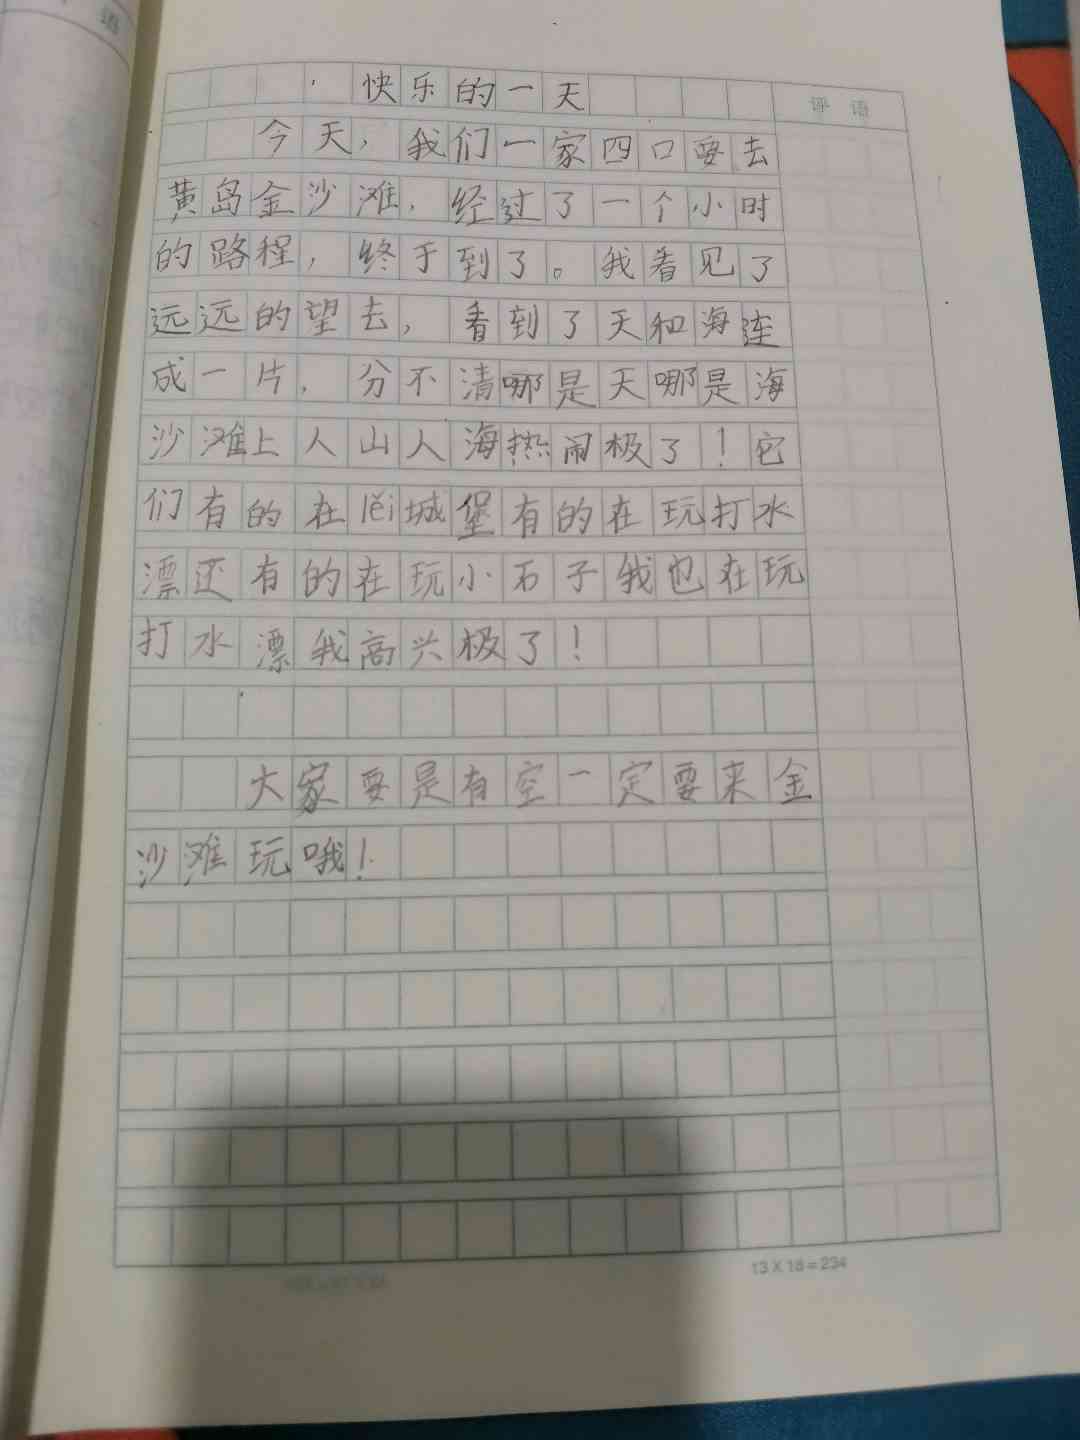 语
快乐的一天
评 语
今天，我们一家四口要去
黄岛金沙滩，经过了一个小时
的路程，终于到了。我看见了
远远的望去，看到了天和海连
成一片，分不清哪是天哪是海
沙滩上人山人海热闹极了！它
们有的在lěi城堡有的在玩打水
漂还有的在玩小石子我也在玩
打水漂我高兴极了！
大家要是有空一定要来金
沙滩玩哦！
13×18=234